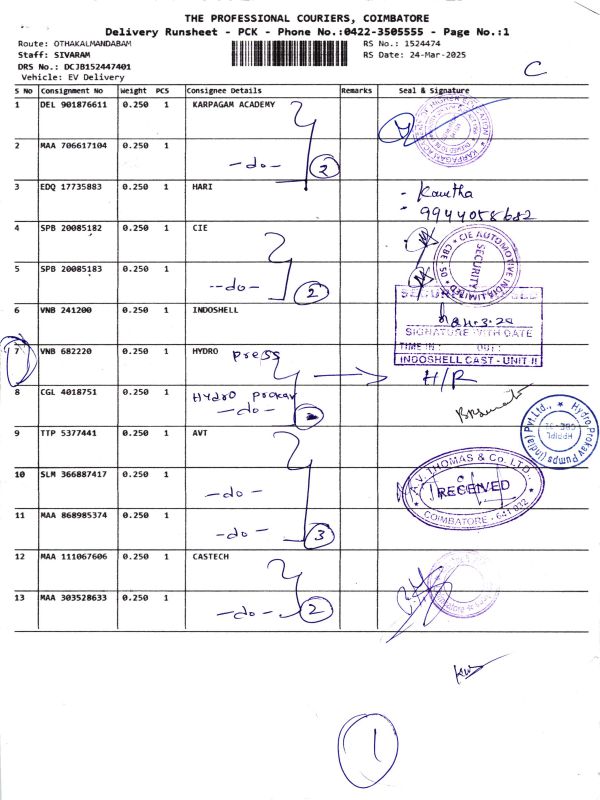 THE PROFESSIONAL COURIERS, COIMBATORE
Delivery Runsheet - PCK - Phone No.:0422-3505555 - Page No.:1
Route: OTHAKALMANDABAM
RS No.: 1524474
Staff: SIVARAM
RS Date: 24-Mar-2025
DRS No.: DCJB152447401
Vehicle: EV Delivery
C
S No Consignment No Weight PCS Consignee Details Remarks Seal & Signature
1 DEL 901876611 0.250 1 KARPAGAM ACADEMY
2 MAA 706617104 0.250 1 -do- 2
3 EDQ 17735883 0.250 1 HARI - Kavitha
9944058682
4 SPB 20085182 0.250 1 CIE
CIE AUTOMOTIVE INDIA LIMITED * CBE-50 * SECURITY
5 SPB 20085183 0.250 1 -do- 2
6 VNB 241200 0.250 1 INDOSHELL
SIGNATURE WITH DATE
TIME IN: OUT:
INDOSHELL CAST - UNIT II
7 VNB 682220 0.250 1 HYDRO press H/R
8 CGL 4018751 0.250 1 Hydro prokav
-do- 2
Hydro Prokav Pumps (India) Pvt.Ltd., *
9 TTP 5377441 0.250 1 AVT
A.V. THOMAS & Co. LTD.,
RECEIVED
COIMBATORE - 641 032
10 SLM 366887417 0.250 1 -do-
11 MAA 868985374 0.250 1 -do- 3
12 MAA 111067606 0.250 1 CASTECH
13 MAA 303528633 0.250 1 -do- 2
1